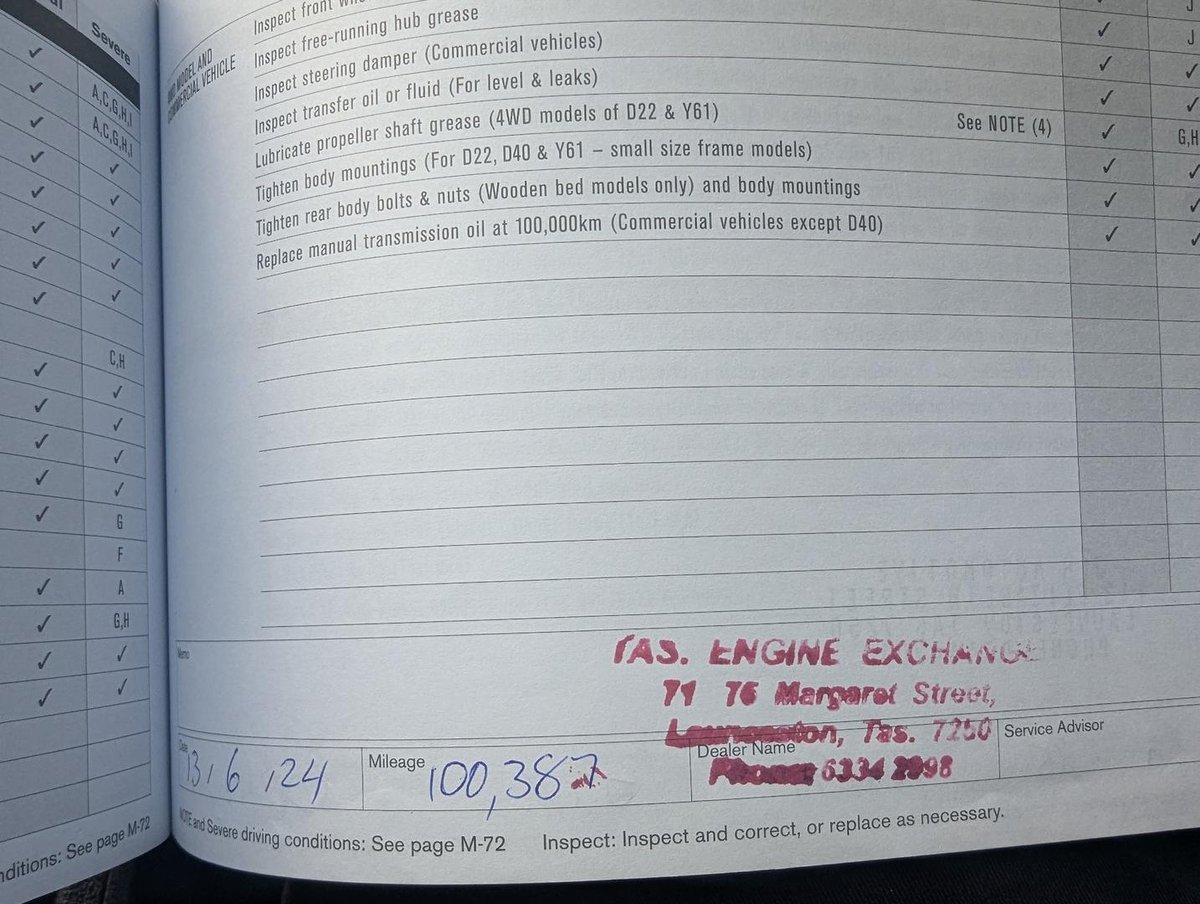 Severe
A,C,G,H,I
A,C,G,H,I
C,H
G
F
A
G,H
See page M-72
Inspect front
Inspect free-running hub grease
4WD MODEL AND
COMMERCIAL VEHICLE
Inspect steering damper (Commercial vehicles)
Inspect transfer oil or fluid (For level & leaks)
Lubricate propeller shaft grease (4WD models of D22 & Y61) See NOTE (4) ✓ G,H
Tighten body mountings (For D22, D40 & Y61 – small size frame models) ✓
Tighten rear body bolts & nuts (Wooden bed models only) and body mountings ✓
Replace manual transmission oil at 100,000km (Commercial vehicles except D40) ✓
Memo
TAS. ENGINE EXCHANGE
71 76 Margaret Street,
Launceston, Tas. 7250
Phone: 6334 2998
Date 13, 6, 24
Mileage 100,387
Dealer Name
Service Advisor
NOTE and Severe driving conditions: See page M-72 Inspect: Inspect and correct, or replace as necessary.